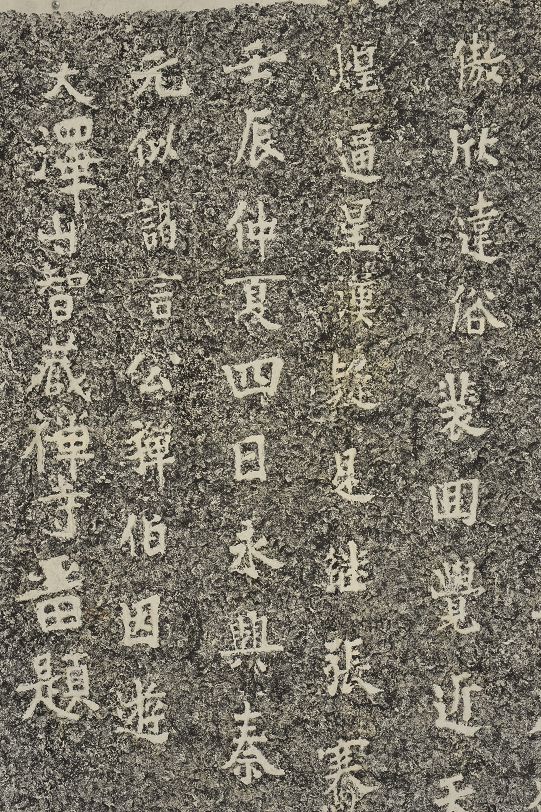 傲欣違俗裴回覺近天
煌逼星漢疑是継張騫
壬辰仲夏四日永興秦
元似謁言公禪伯因遊
大澤山智藏禪寺畱題